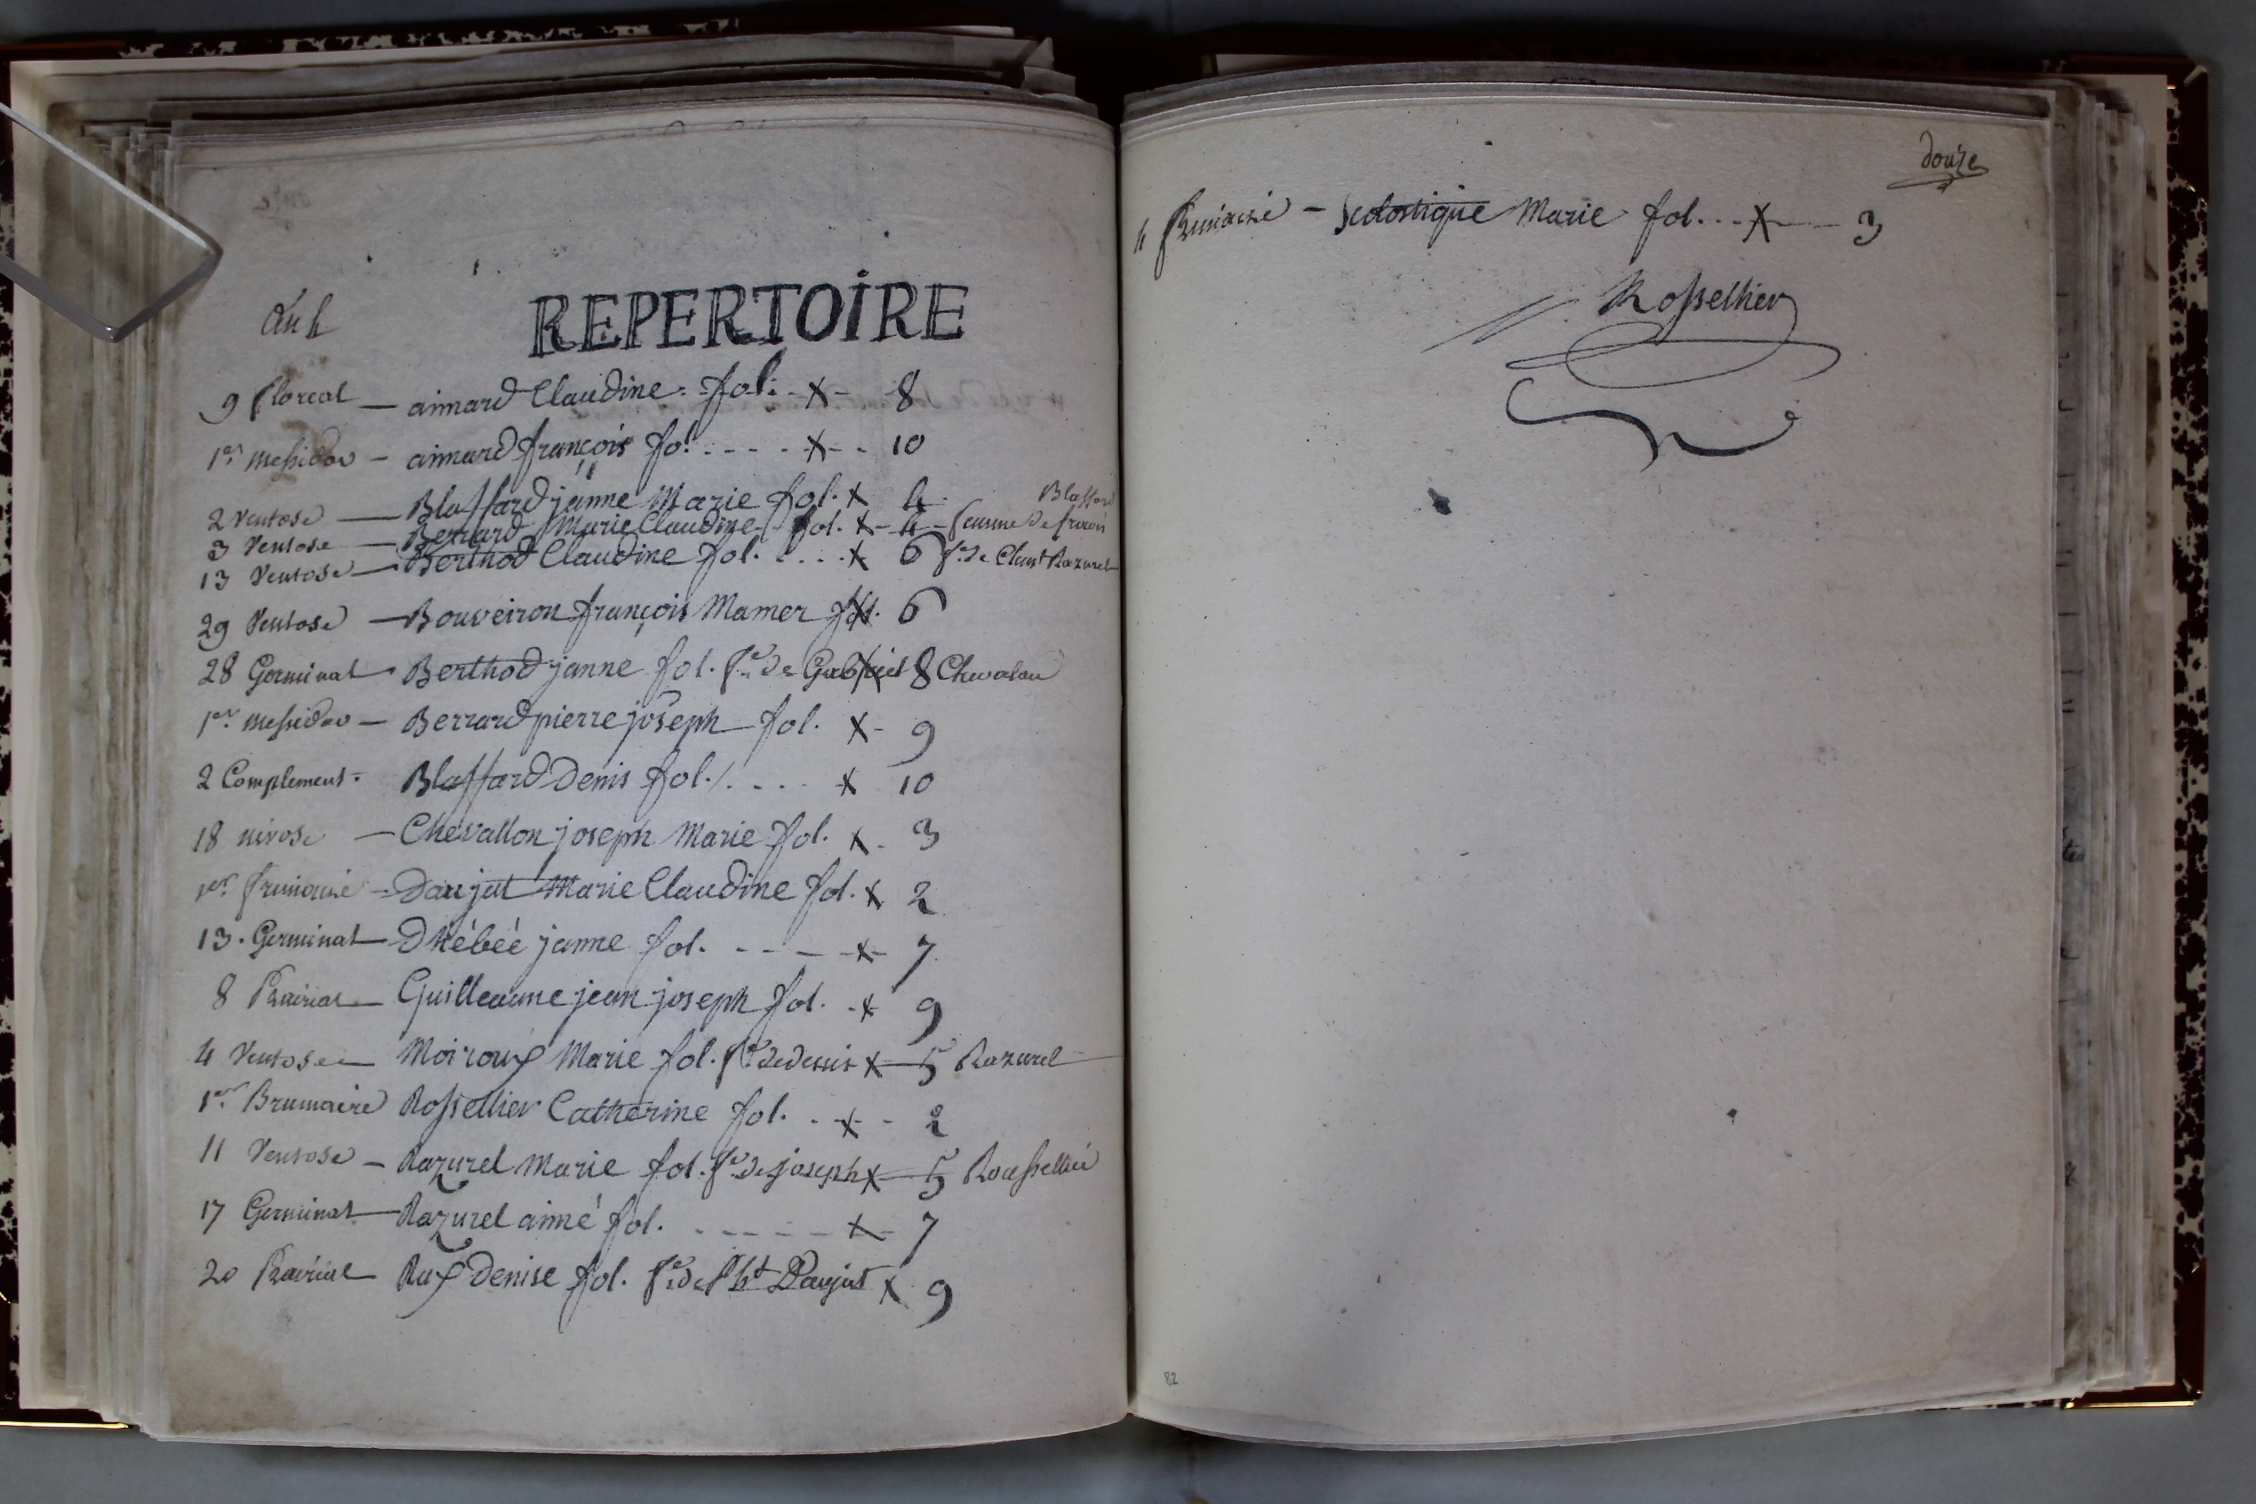 an 4
REPERTOIRE
9 floreal — aimard Claudine. fol. . x - 8
1er. messidor — aimard françois fol. . . . . x - . 10
2 ventose — Blaffard janne Marie fol. x 4
3 ventose — Berrard Marie Claudine fol. x - 4 - femme de françois Blaffard
13 ventose — Berthod Claudine fol. . . . . x 6 fe. de Claust Razurel
29 ventose — Bouveiron françois Mamer fol. x 6
28 Germinal - Berthod janne fol. fe. de Gabriel x 8 Chevalon
1er. messidor — Berrard pierre joseph fol. x - 9
2 Complement. Blaffard Denis fol. . . . . x 10
18 nivose — Chevallon joseph Marie fol. x - 3
1er. frimaire - Daujat Marie Claudine fol. x 2
13. Germinal — Dhébéé janne fol. - - - - x - 7
8 Prairial — Guilleaume jean joseph fol. . x 9
4 Ventose — Moiroux Marie fol. fe. de denis x — 5 Razurel
1er. Brumaire Rossellier Catherine fol. . . x - - 2
11 Ventose — Razurel Marie fol. fe. de joseph x — 5 Roussellier
17 Germinal — Razurel aimé fol. - - - - - x - 7
20 Prairial — Rux Denise fol. fe. de Daujat x 9
douze
4 frimaire — Scolostique Marie fol. . . x — 3
Rossellier
82